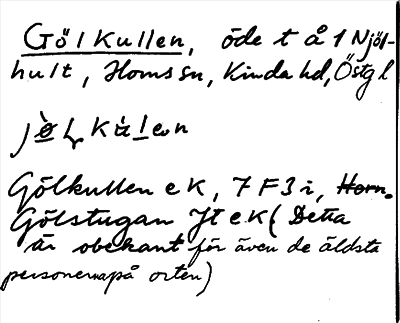 Gölkullen, öde t å 1 Njöl-
hult, Horns sn, Kinda hd, Östgl
Gölkullen ek, 7 F 3 i, Horn.
Gölstugan Jt ek (Detta
är obekant för även de äldsta
personerna på orten)